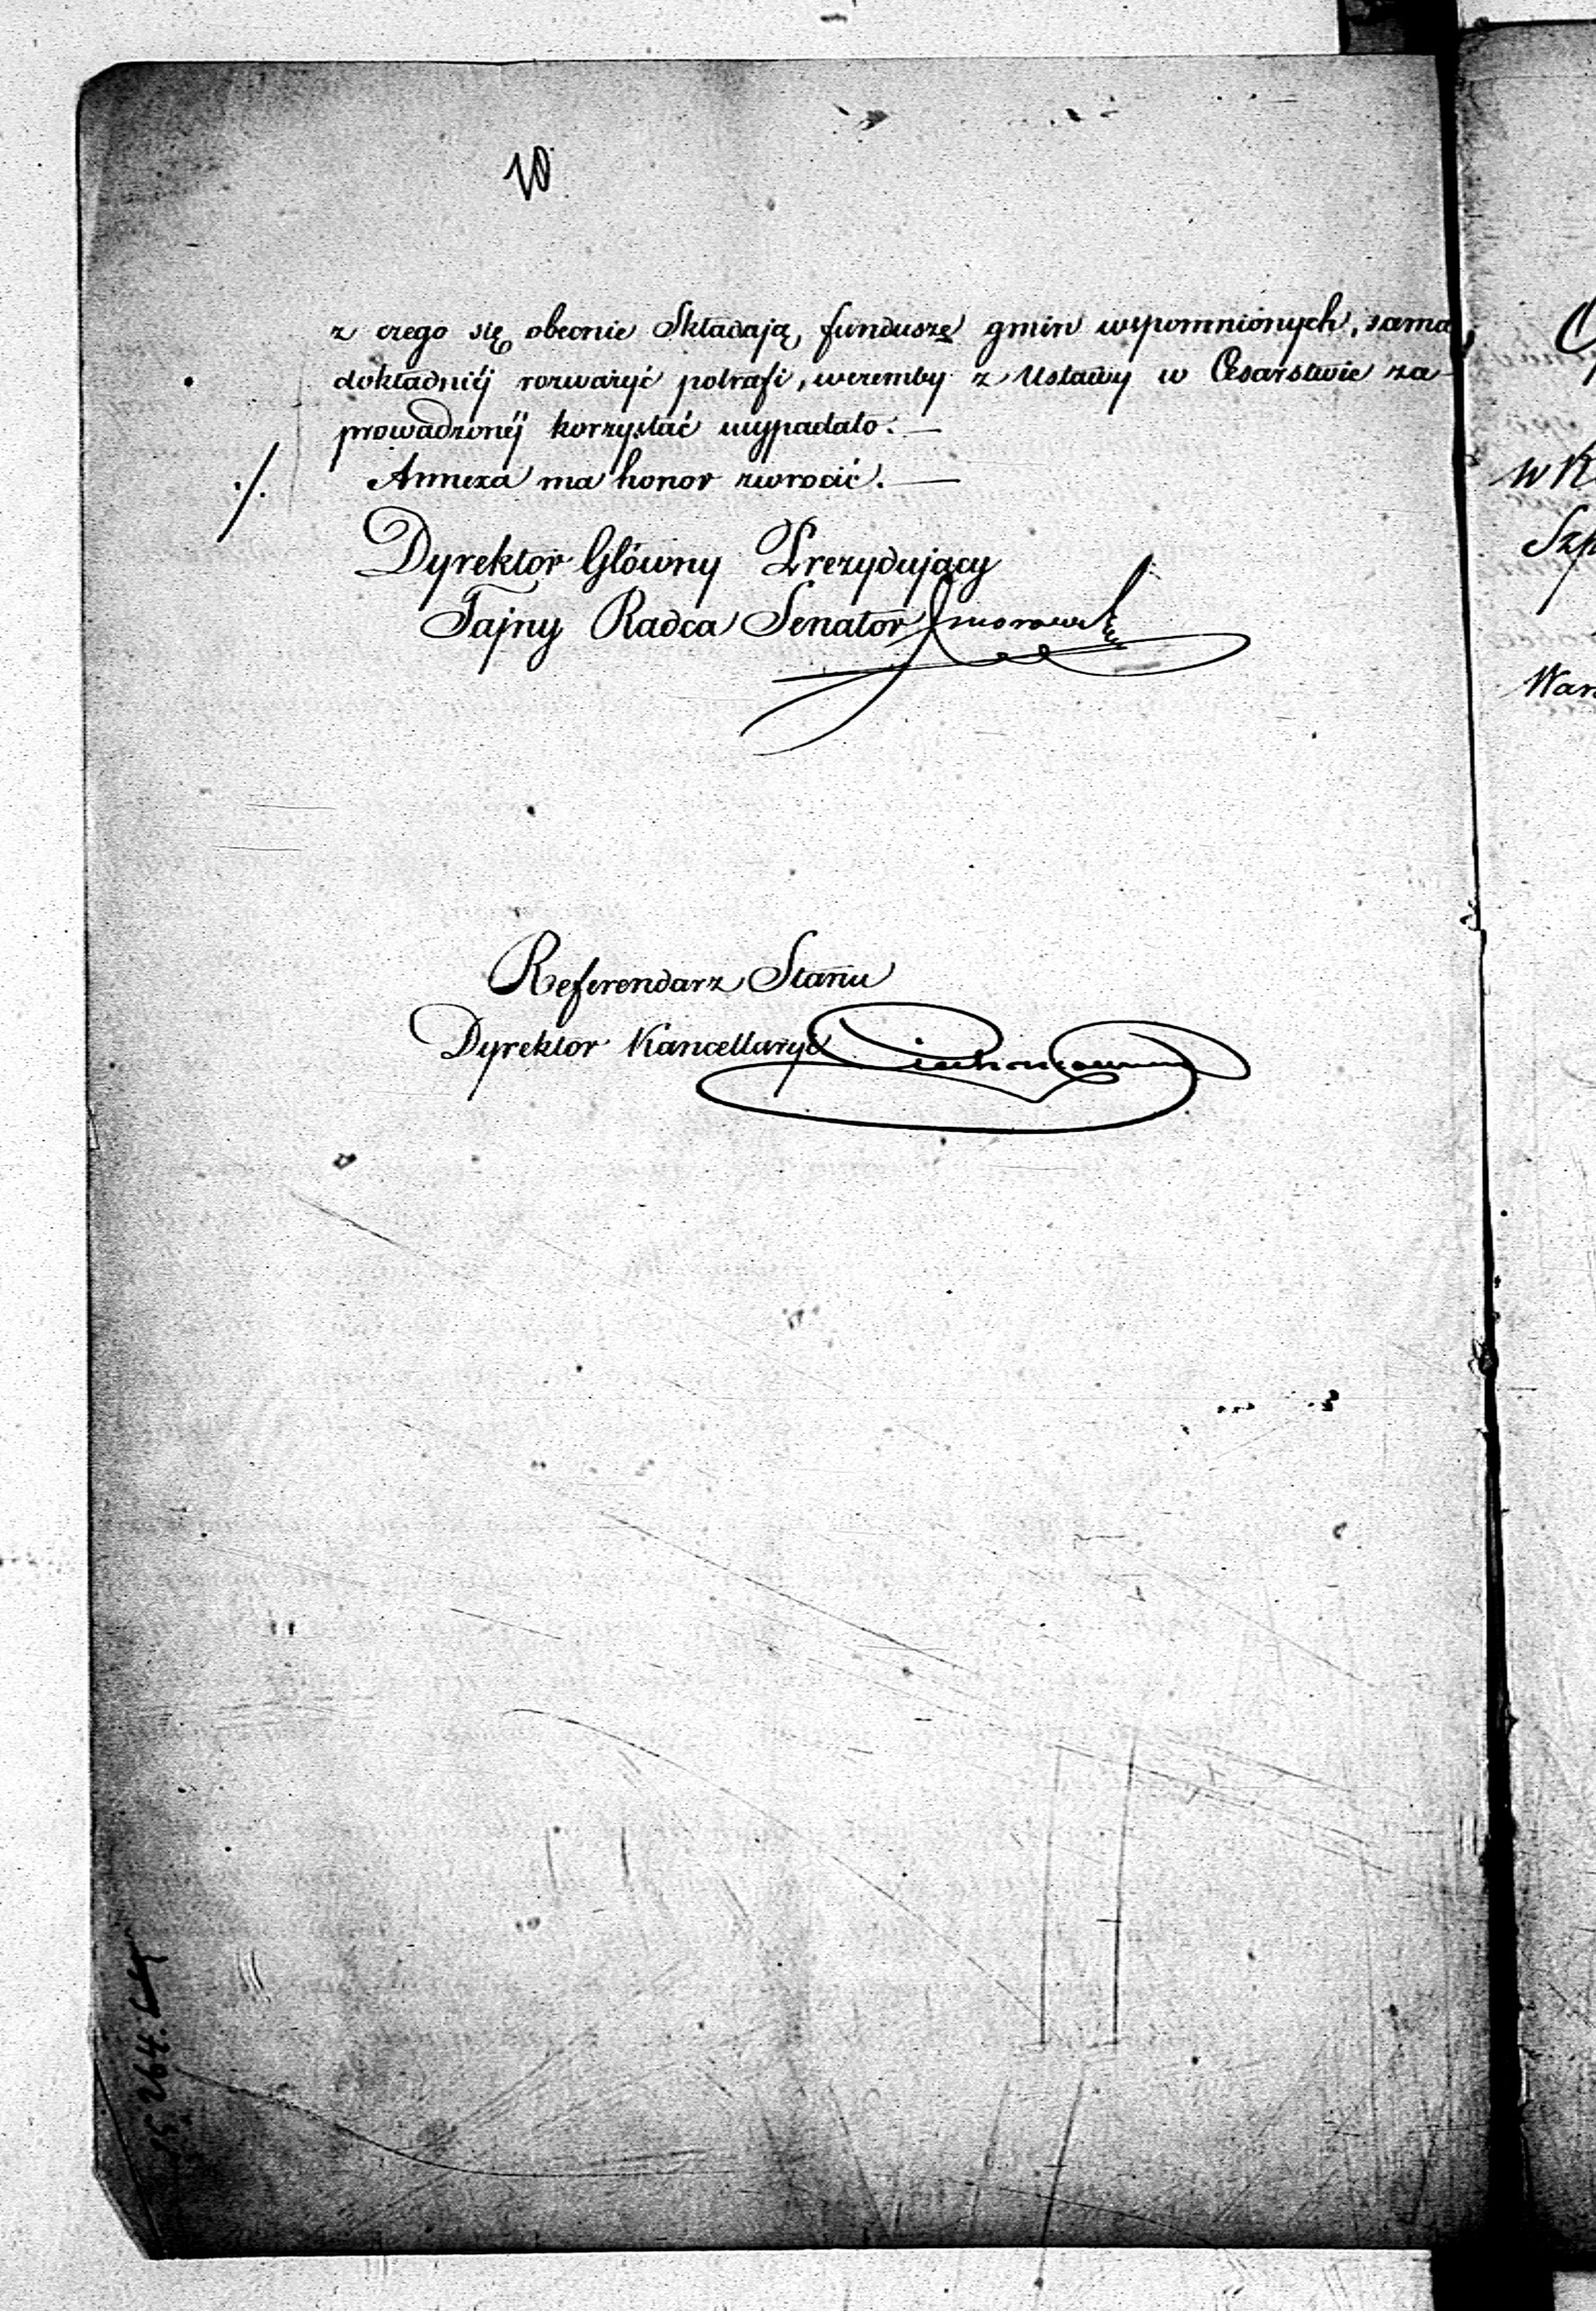 10
z czego się obecnie Składają, fundusze gmin wspomnionych, sama
dokładniéj rozważyć potrafi, wczemby z Ustawy w Cesarstwie za-
prowadzonéj korzystać wypadało. —
./. Annexa ma honor zwrocić. —
Dyrektor Główny Prezydujący
Tajny Radca Senator
Referendarz Stanu
Dyrektor Kancellaryi
264.
w K
Szp
War